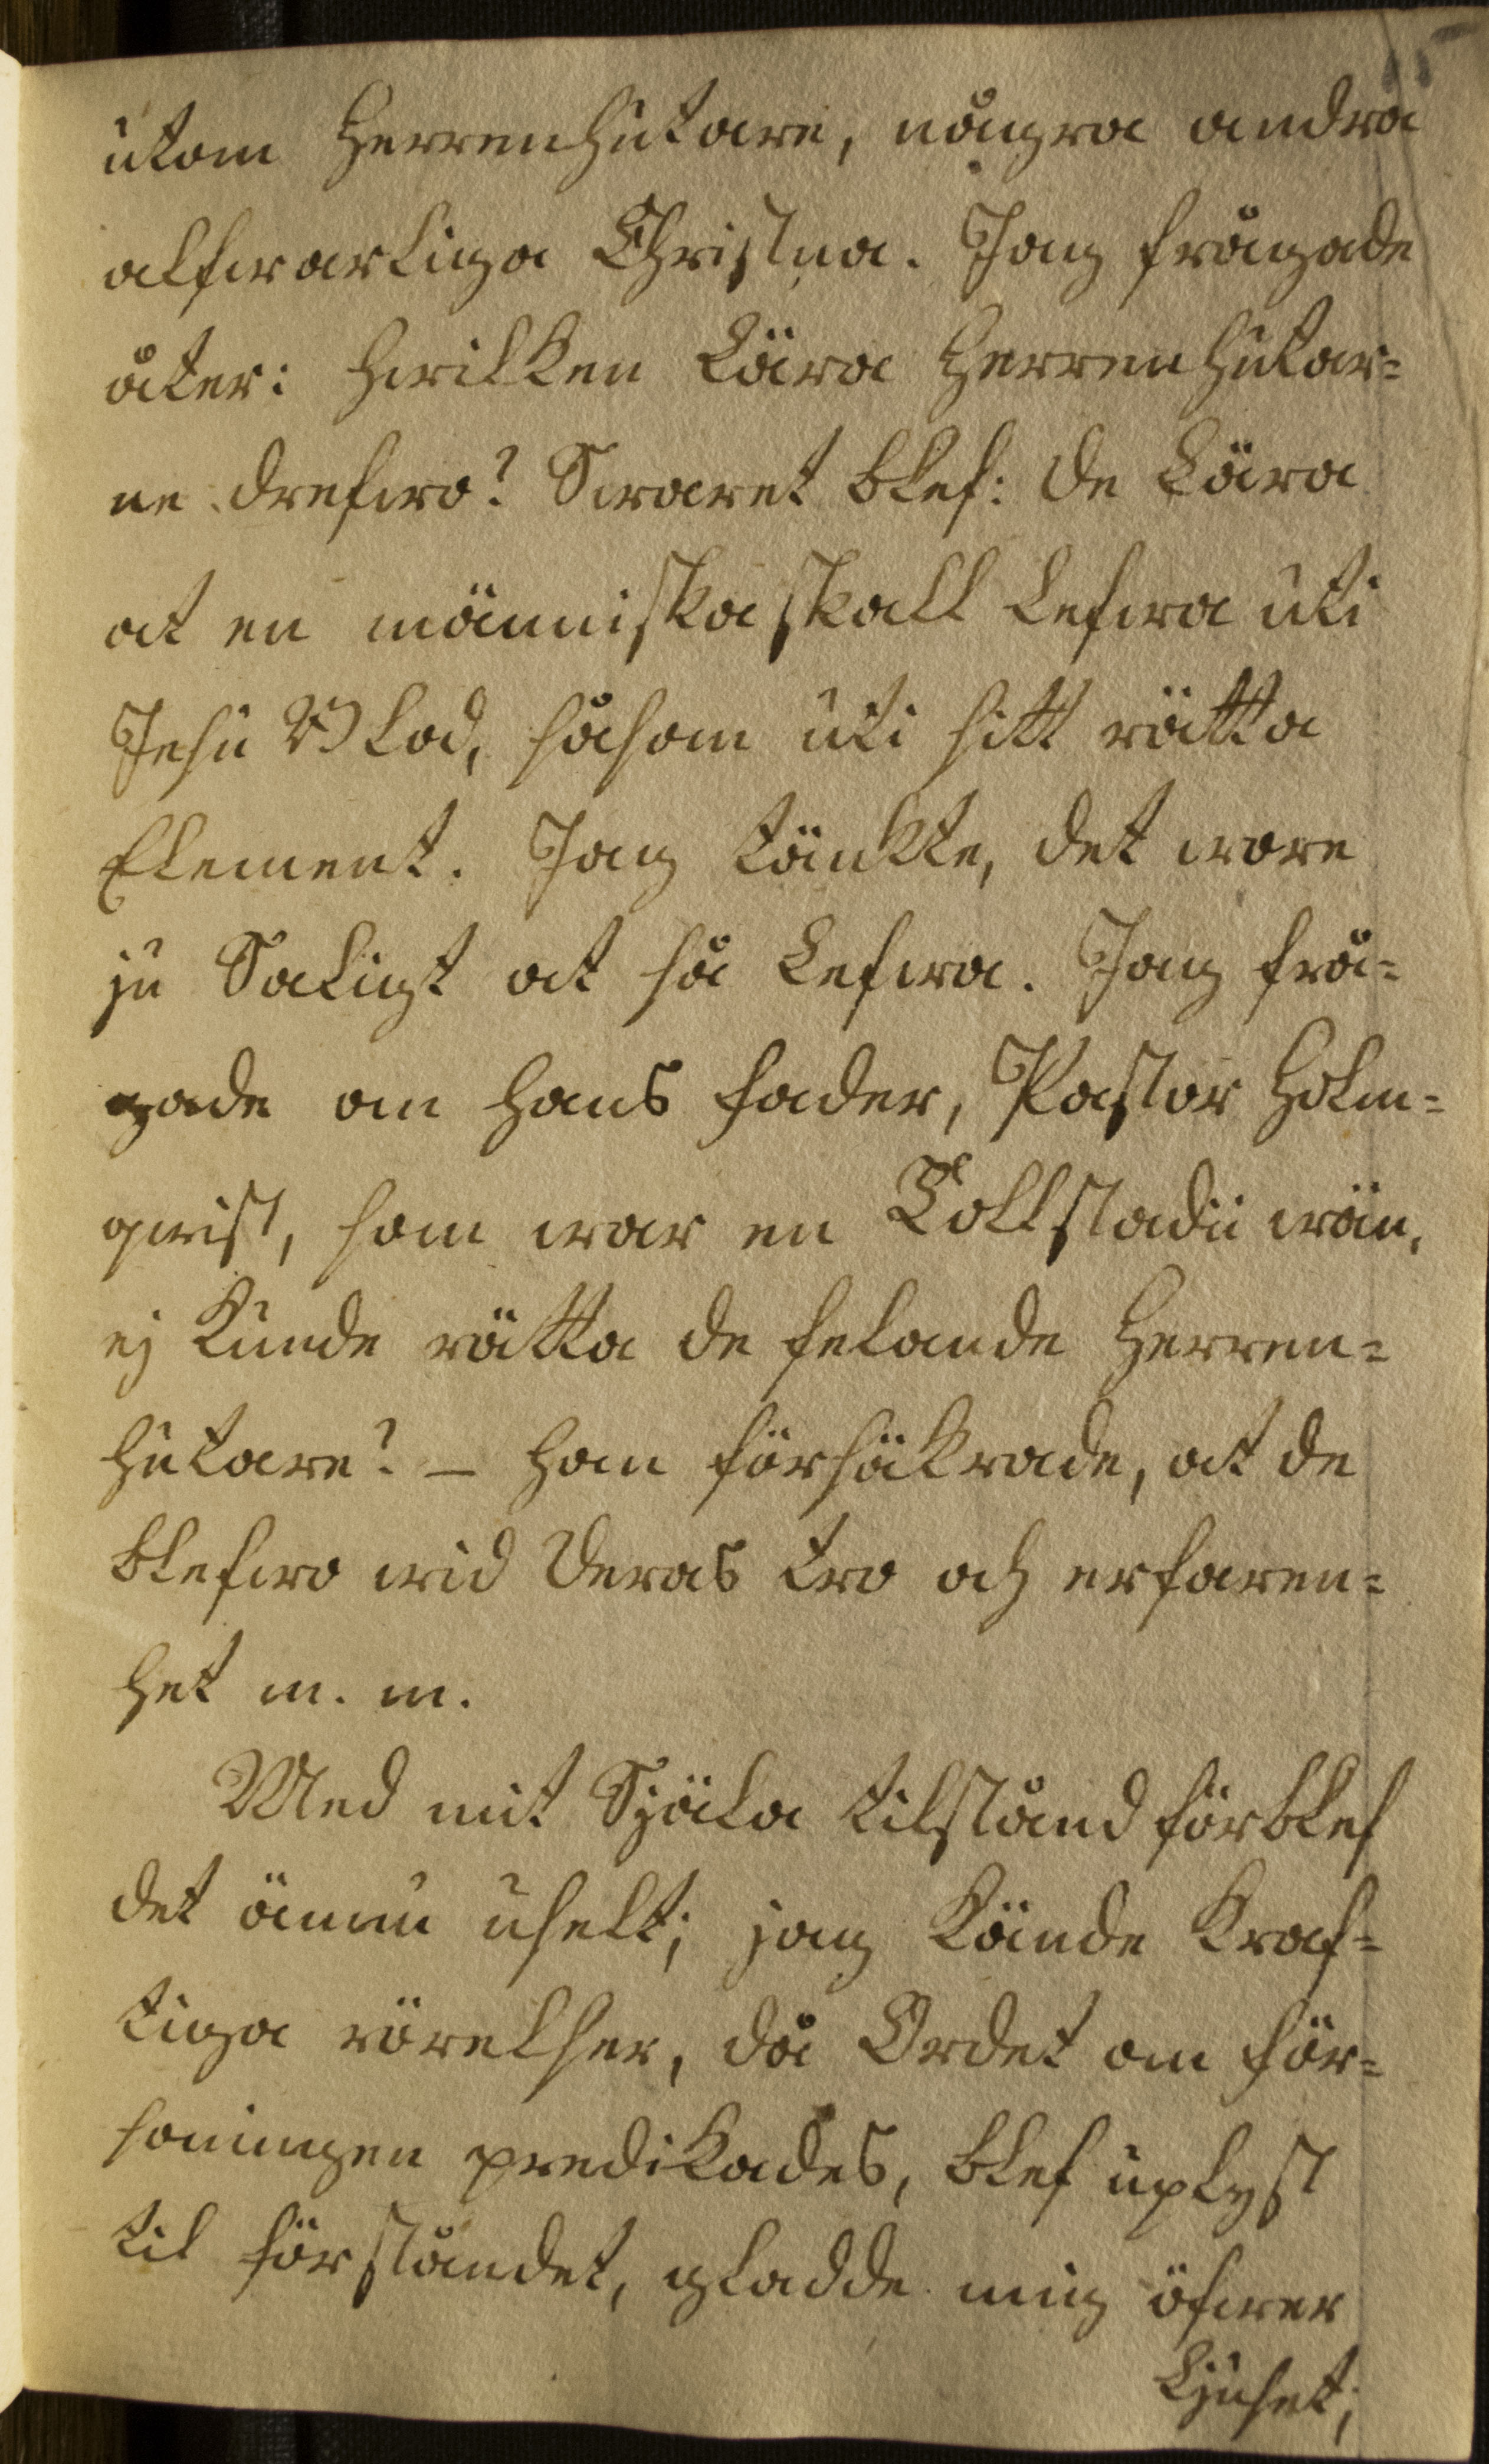 utom Herrenhutare, några andra
alfwarliga Christna. Jag frågade
åter: hwilken Lära Herrenhutar=
ne drefwo? Swaret blef: de Lära
at en människa skall Lefwa uti
Jesu Blod, såsom uti sitt rätta
Element. Jag tänkte, det wore
ju Saligt at så Lefwa. Jag frå=
gade om hans fader, Pastor Holm=
qwist, som war en Tollstadii wän,
ej kunde rätta de felande Herren=
hutare? – han försäkrade, at de
blefwo wid deras tro och erfaren=
het m. m.
Med mit Själa tilstånd förblef
det ännu uselt; jag kände kraf=
tiga rörelser, då Ordet om för=
soningen predikades, blef uplyst
til förståndet, gladde mig öfwer
Ljuset;